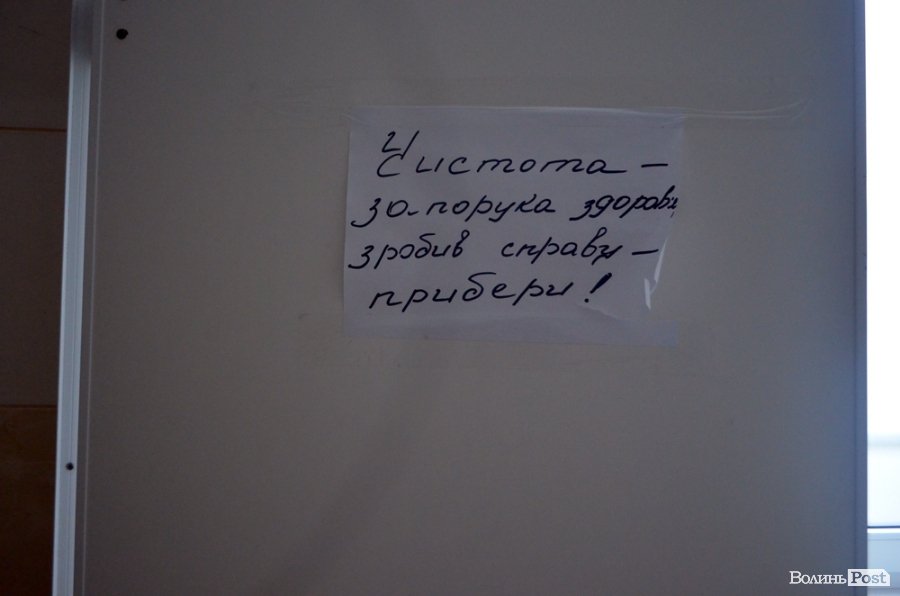 Чистота –
запорука здоровя,
зробив справу –
прибери!
ВолиньPost